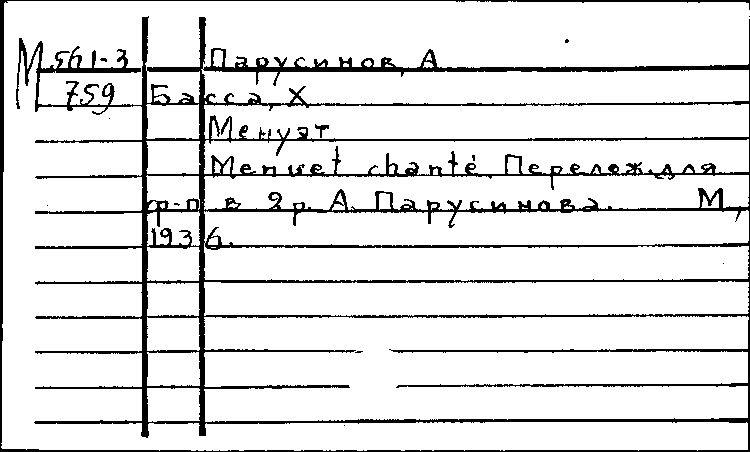 М 561-3 Парусинов, А
759 Басса, Х
Менуэт
Menuet chanté. Перелож. для
ф-п в 2 р. А. Парусинова. М.,
1936.